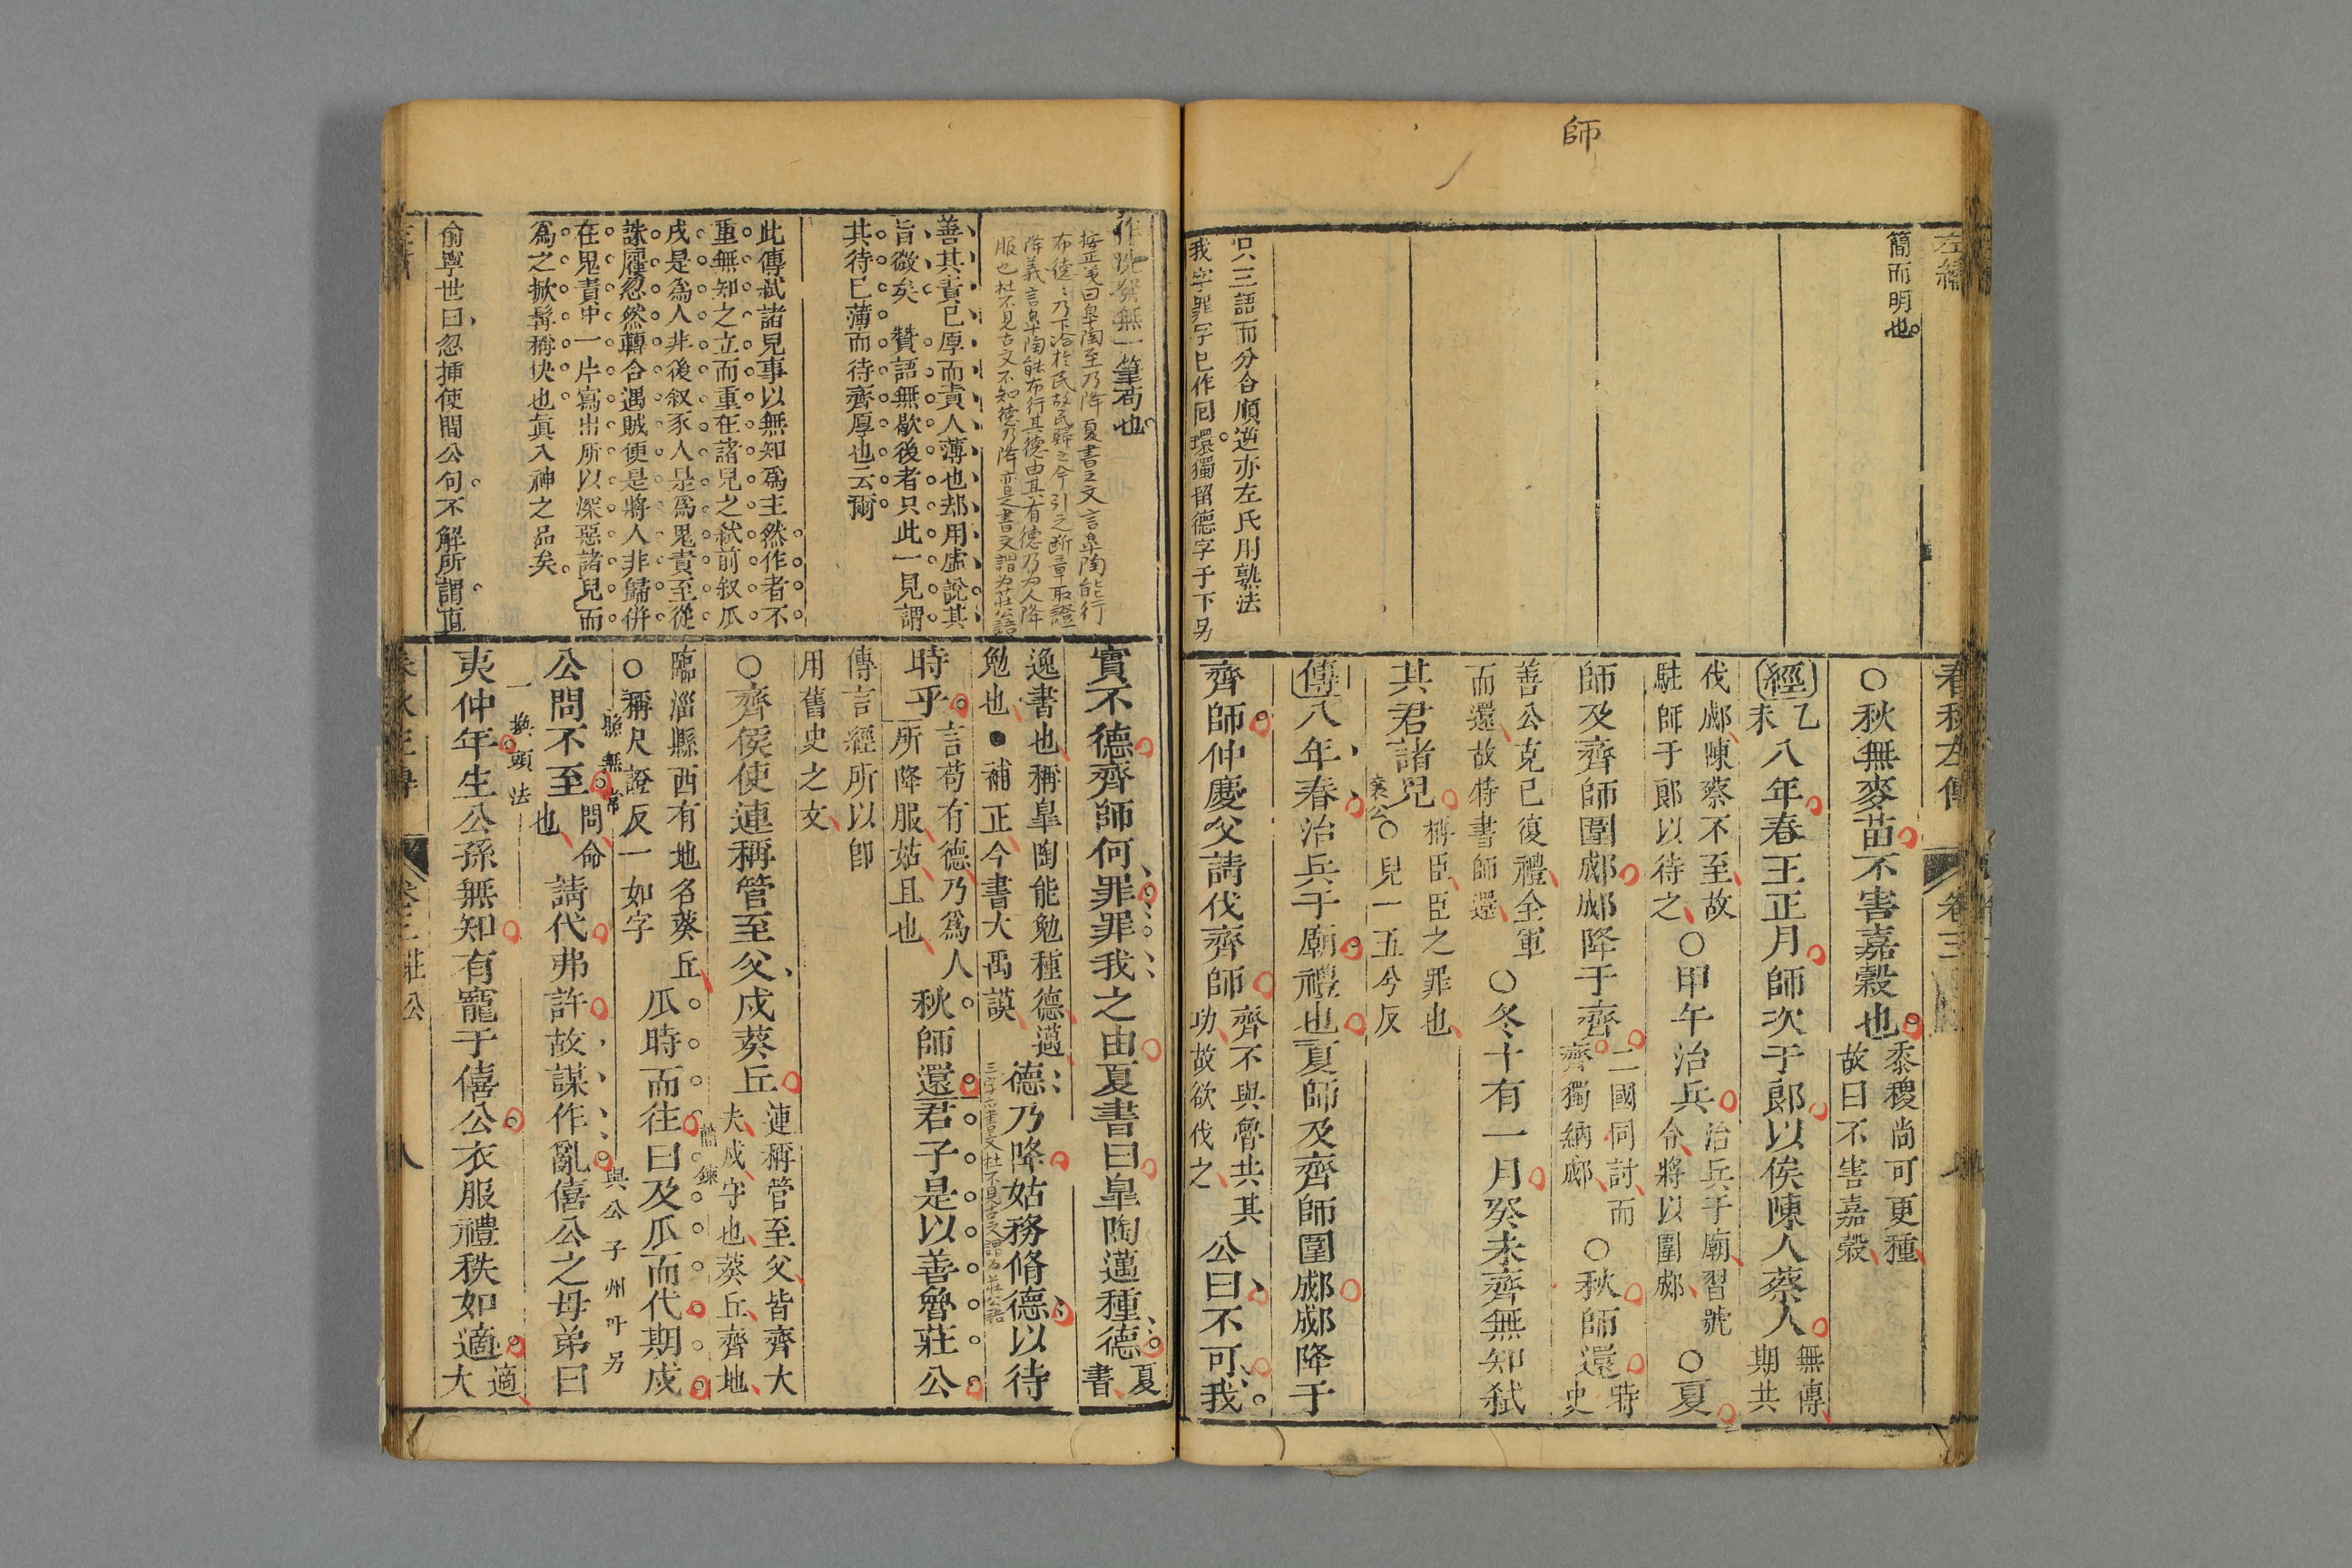 師
左繡
簡而明也
只三語而分合順逆亦左氏用熟法
我字罪字已作囘環獨留德字于下另
春秋左傳
卷三
七
○秋無麥苗不害嘉穀也
黍稷尚可更種
故曰不害嘉穀
經
乙
未
八年春王正月師次于郎以俟陳人蔡人
無傳
期共
伐郕陳蔡不至故
駐師于郎以待之
○甲午治兵
治兵于廟習號
令將以圍郕
○夏
師及齊師圍郕郕降于齊
二國同討而
齊獨納郕
○秋師還
時
史
善公克己復禮全軍
而還故特書師還
○冬十有一月癸未齊無知弒
其君諸兒
襄公
稱臣臣之罪也
○兒一五兮反
傳八年春治兵于廟禮也夏師及齊師圍郕郕降于
齊師仲慶父請伐齊師
齊不與魯共其
功故欲伐之
公曰不可我
作洗發無一筆苟也
按正義曰皐陶至乃降夏書之文言皐陶能行
布德德乃下洽於民故民歸之今引之斷章取證
降義言皐陶能布行其德由其有德乃为人降
服也杜不見古文不知德乃降亦是書文謂为莊公語
善其責已厚而責人薄也却用虛說其
旨微矣　贊語無歇後者只此一見謂
其待已薄而待齊厚也云爾
此傳弒諸兒事以無知爲主然作者不
重無知之立而重在諸兒之弒前叙瓜
戍是爲人非後叙豕人是爲鬼責至從
誅屨忽然轉合遇賊便是將人非歸併
在鬼責中一片寫出所以深惡諸兒而
爲之掀髯稱快也眞入神之品矣
俞寧世曰忽挿使間公句不解所謂直
實不德齊師何罪罪我之由夏書曰皐陶邁種德
夏
書
逸書也稱皐陶能勉種德邁
勉也●補正今書大禹謨
三字亦書文杜不見古文謂为莊公語
德乃降姑務脩德以待
時乎
言苟有德乃爲人
所降服姑且也
秋師還君子是以善魯莊公
傳言經所以卽
用舊史之文
○齊侯使連稱管至父戍葵丘
連稱管至父皆齊大
夫戍守也葵丘齊地
臨淄縣西有地名葵丘
○稱尺證反一如字
瓜時而往曰及瓜而代期戍
公問不至
問命
也
請代弗許故謀作亂僖公之母弟曰
與公子州吁另
一換頭法
夷仲年生公孫無知有寵于僖公衣服禮秩如適
適
大
卷三莊公
八